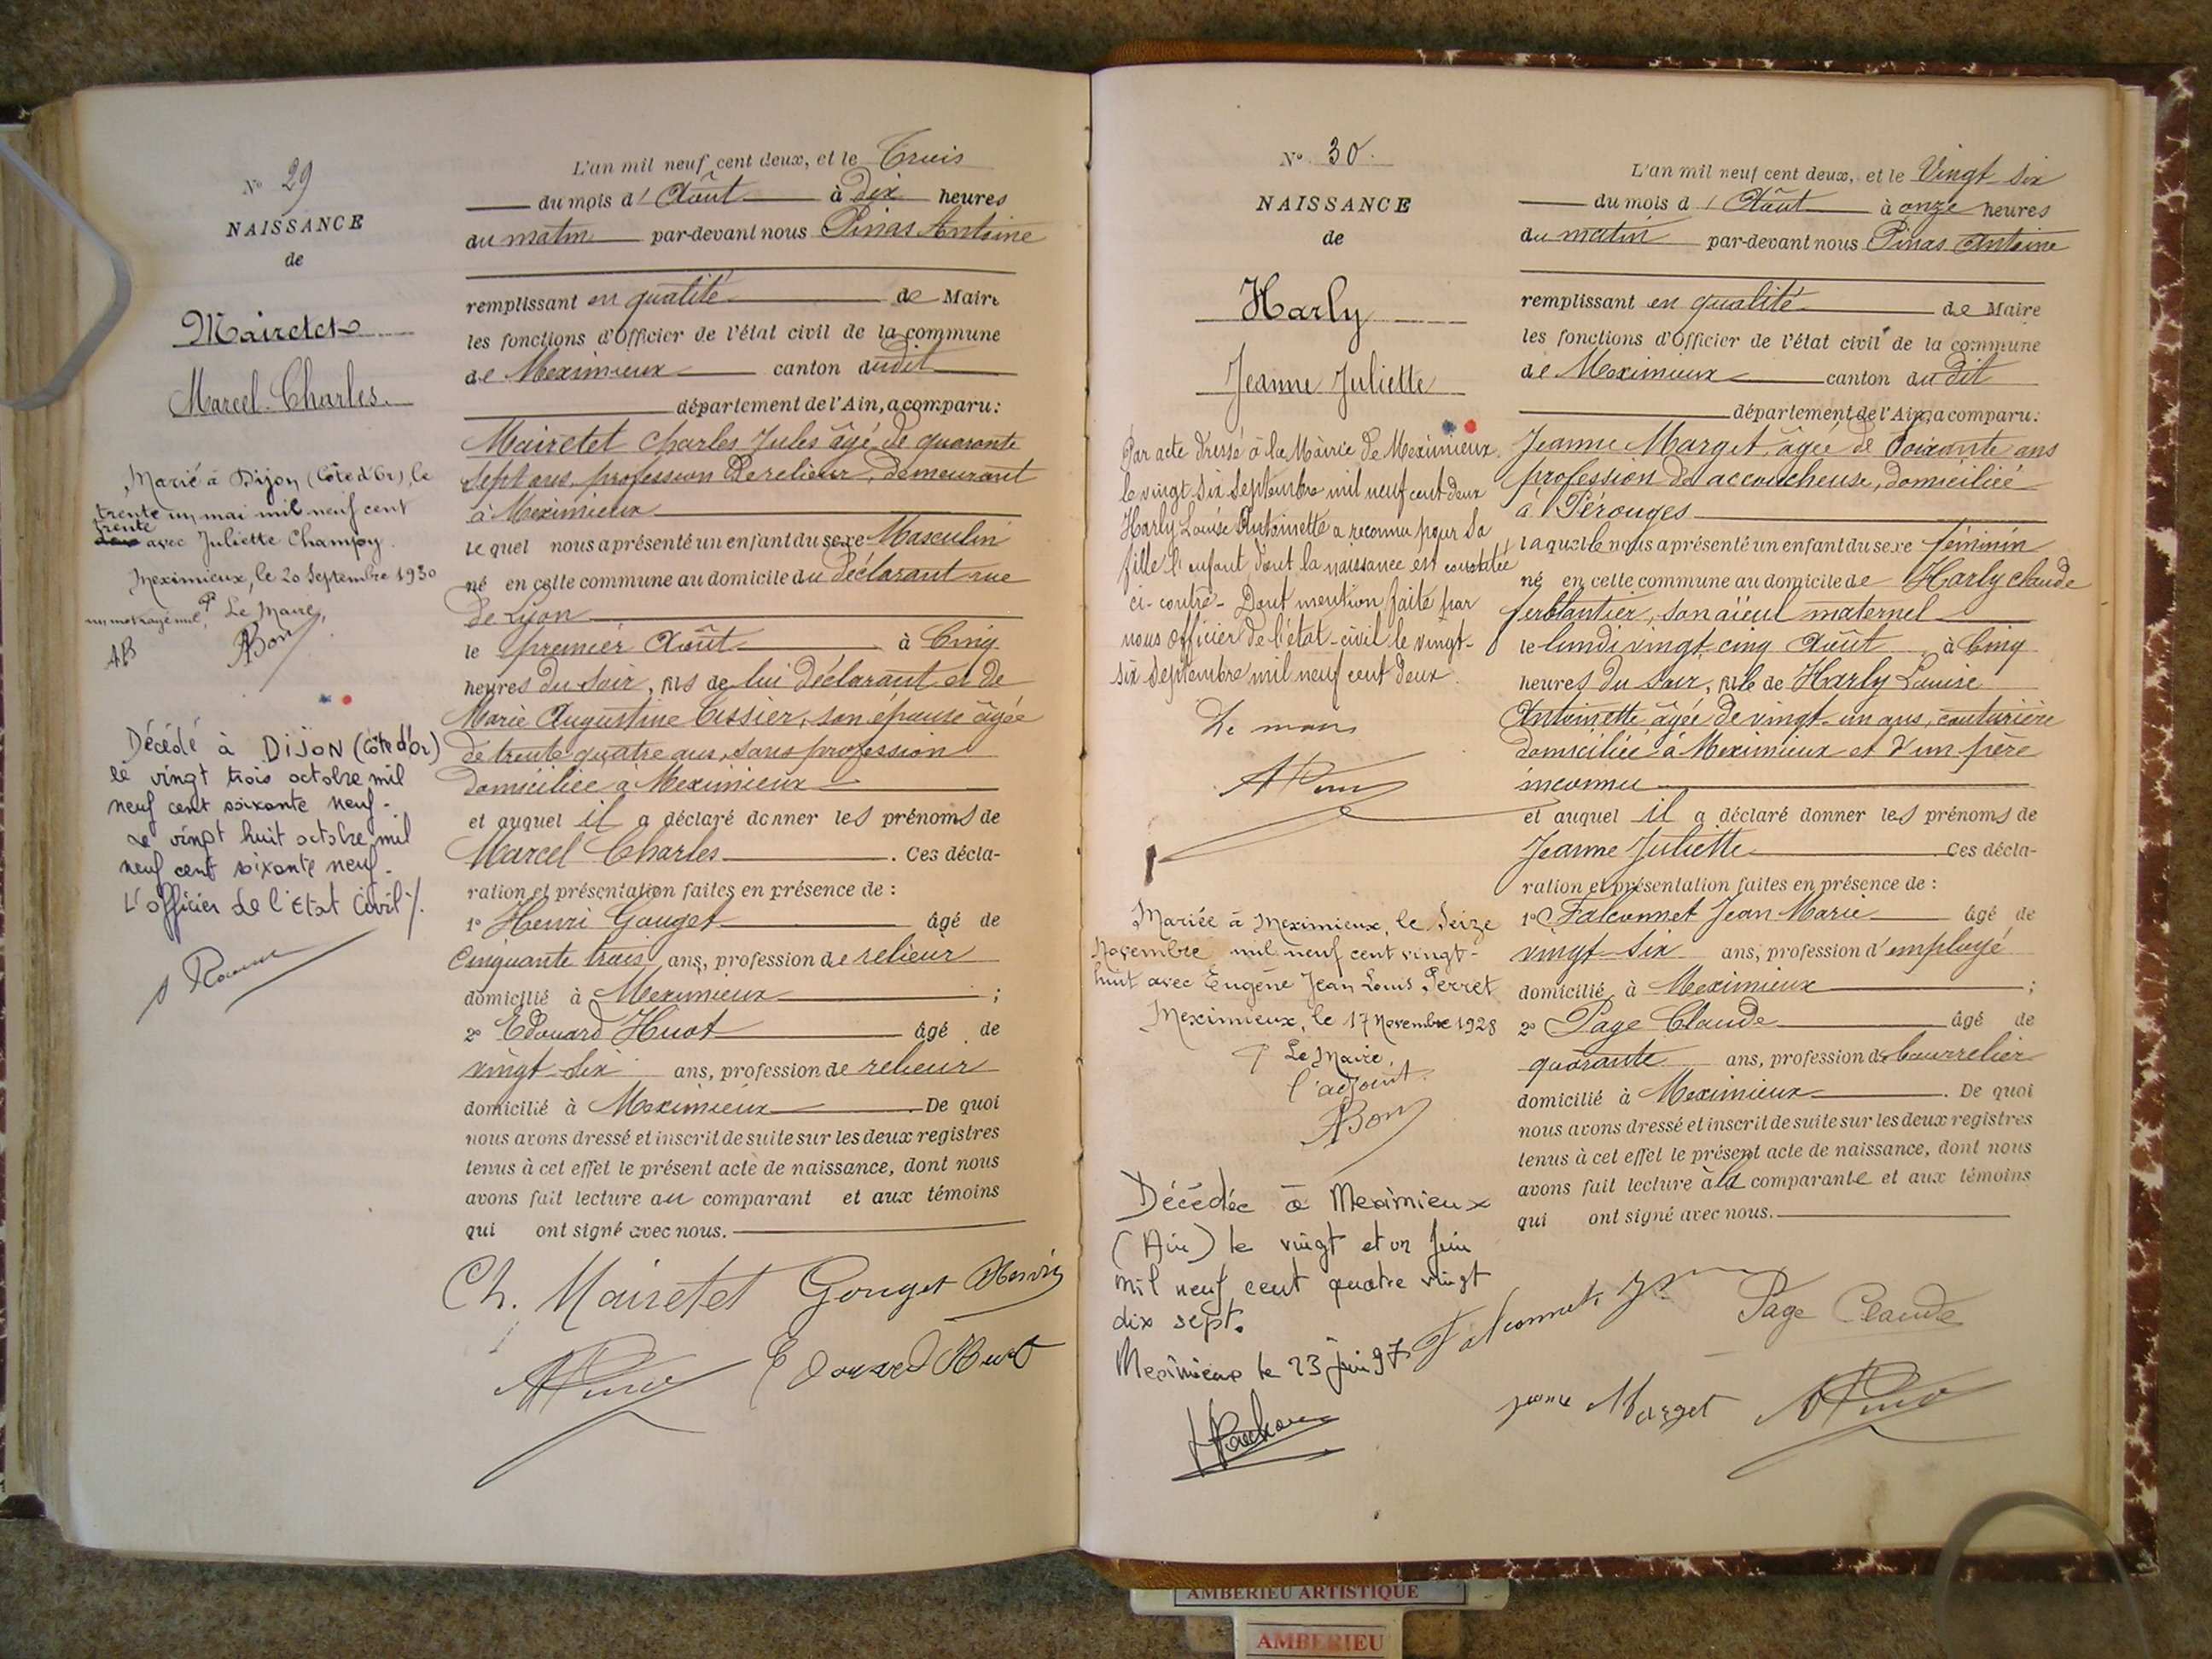 N° 29
NAISSANCE
de
Mairetet
Marcel Charles.
Marié à Dijon (Côte d'Or), le
trente un mai mil neuf cent
trente
avec Juliette Champy.
Meximieux, le 20 Septembre 1930
un mot rayé nul, Pr Le Maire,
AB
ABon
Décédé à DIJON (Côte d'Or)
le vingt trois octobre mil
neuf cent soixante neuf -
Le vingt huit octobre mil
neuf cent soixante neuf -
L'officier de l'Etat Civil ./.
L'an mil neuf cent deux, et le Trois
du mois d' Août à dix heures
du matin par-devant nous Pinas Antoine
remplissant en qualité de Maire
les fonctions d'Officier de l'état civil de la commune
de Meximieux canton dudit
département de l'Ain, a comparu:
Mairetet Charles Jules âgé de quarante
sept ans, profession de relieur, demeurant
à Meximieux
lequel nous a présenté un enfant du sexe Masculin
né en cette commune au domicile du déclarant rue
de Lyon
le premier Août à Cinq
heures du soir, fils de lui déclarant et de
Marie Augustine Tissier, son épouse âgée
de trente quatre ans, sans profession
domiciliée à Meximieux
et auquel il a déclaré donner les prénoms de
Marcel Charles. Ces décla-
ration et présentation faites en présence de :
1° Henri Gouget âgé de
Cinquante trois ans, profession de relieur
domicilié à Meximieux ;
2° Edouard Huot âgé de
vingt-six ans, profession de relieur
domicilié à Meximieux. De quoi
nous avons dressé et inscrit de suite sur les deux registres
tenus à cet effet le présent acte de naissance, dont nous
avons fait lecture au comparant et aux témoins
qui ont signé avec nous.
Ch. Mairetet Gouget Henri
APinas Edouard Huot
N° 30.
NAISSANCE
de
Harly
Jeanne Juliette
Par acte dressé à la Mairie de Meximieux
le vingt six Septembre mil neuf cent deux
Harly Louise Antoinette a reconnu pour sa
fille l'enfant dont la naissance est constatée
ci-contre - Dont mention faite par
nous officier de l'état-civil le vingt-
six Septembre mil neuf cent deux.
Le maire
APinas
Mariée à Meximieux, le Seize
Novembre mil neuf cent vingt-
huit avec Eugène Jean Louis Perret
Meximieux, le 17 Novembre 1928
Pr Le Maire,
l'adjoint.
ABon
Décédée à Meximieux
(Ain) le vingt et un juin
mil neuf cent quatre vingt
dix sept.
Meximieux le 23 juin 97
L'an mil neuf cent deux, et le Vingt six
du mois d' Août à onze heures
du matin par-devant nous Pinas Antoine
remplissant en qualité de Maire
les fonctions d'Officier de l'état civil de la commune
de Meximieux canton du dit
département de l'Ain, a comparu:
Jeanne Marget, âgée de Soixante ans
profession de accoucheuse, domiciliée
à Pérouges
laquelle nous a présenté un enfant du sexe féminin
né en cette commune au domicile de Harly Claude
ferblantier, son aïeul maternel
le lundi vingt-cinq Août à Cinq
heures du soir, fille de Harly Louise
Antoinette âgée de vingt-un ans, couturière
domiciliée à Meximieux et d'un père
inconnu
et auquel il a déclaré donner les prénoms de
Jeanne Juliette Ces décla-
ration et présentation faites en présence de :
1° Falconnet Jean Marie âgé de
vingt-six ans, profession d'employé
domicilié à Meximieux ;
2° Page Claude âgé de
quarante ans, profession de bourrelier
domicilié à Meximieux. De quoi
nous avons dressé et inscrit de suite sur les deux registres
tenus à cet effet le présent acte de naissance, dont nous
avons fait lecture à la comparante et aux témoins
qui ont signé avec nous.
Falconnet Page Claude
Jeanne Marget APinas
AMBERIEU ARTISTIQUE
AMBERIEU